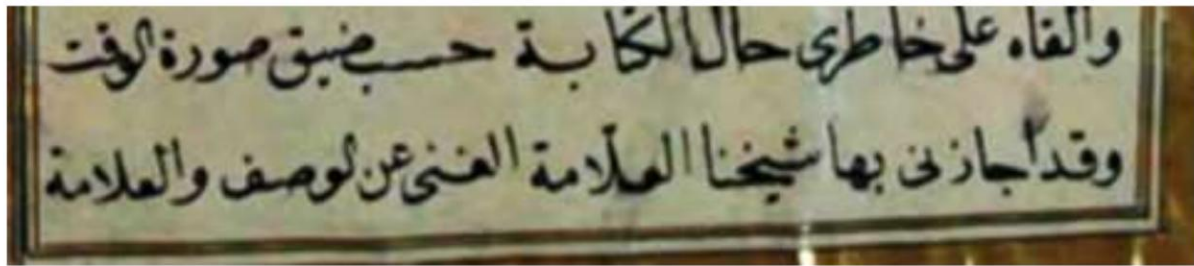 والقاه على خاطرى حال الكتابة حسب ضيق صورة الوقت
وقد أجازنى بها شيخنا العلّامة الغنى عن الوصف والعلامة